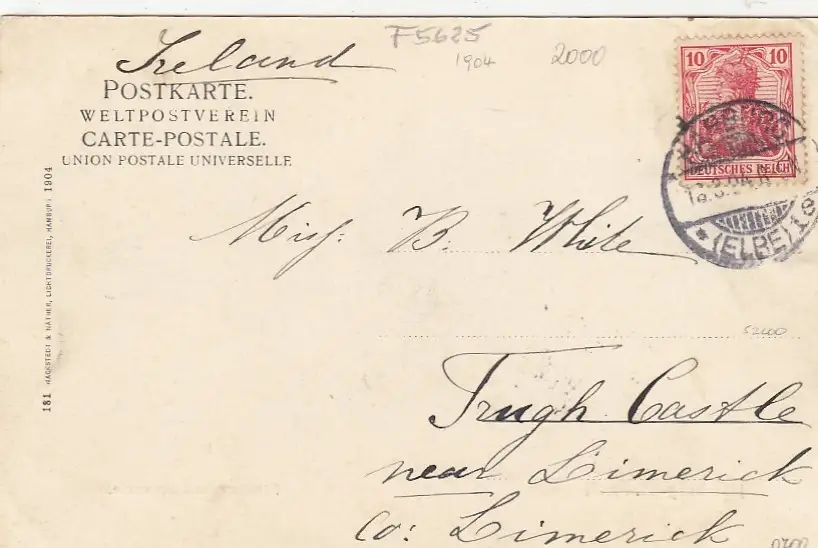 Ireland
F5625
1904
2000
POSTKARTE.
WELTPOSTVEREIN
CARTE-POSTALE.
UNION POSTALE UNIVERSELLE
10 10
DEUTSCHES REICH
(ELBE)
181 HAGESTEDT & NÄTHER, LICHTDRUCKEREI, HAMBURG 1904
Miss. B. White
52400
Trugh Castle
near Limerick
Co: Limerick